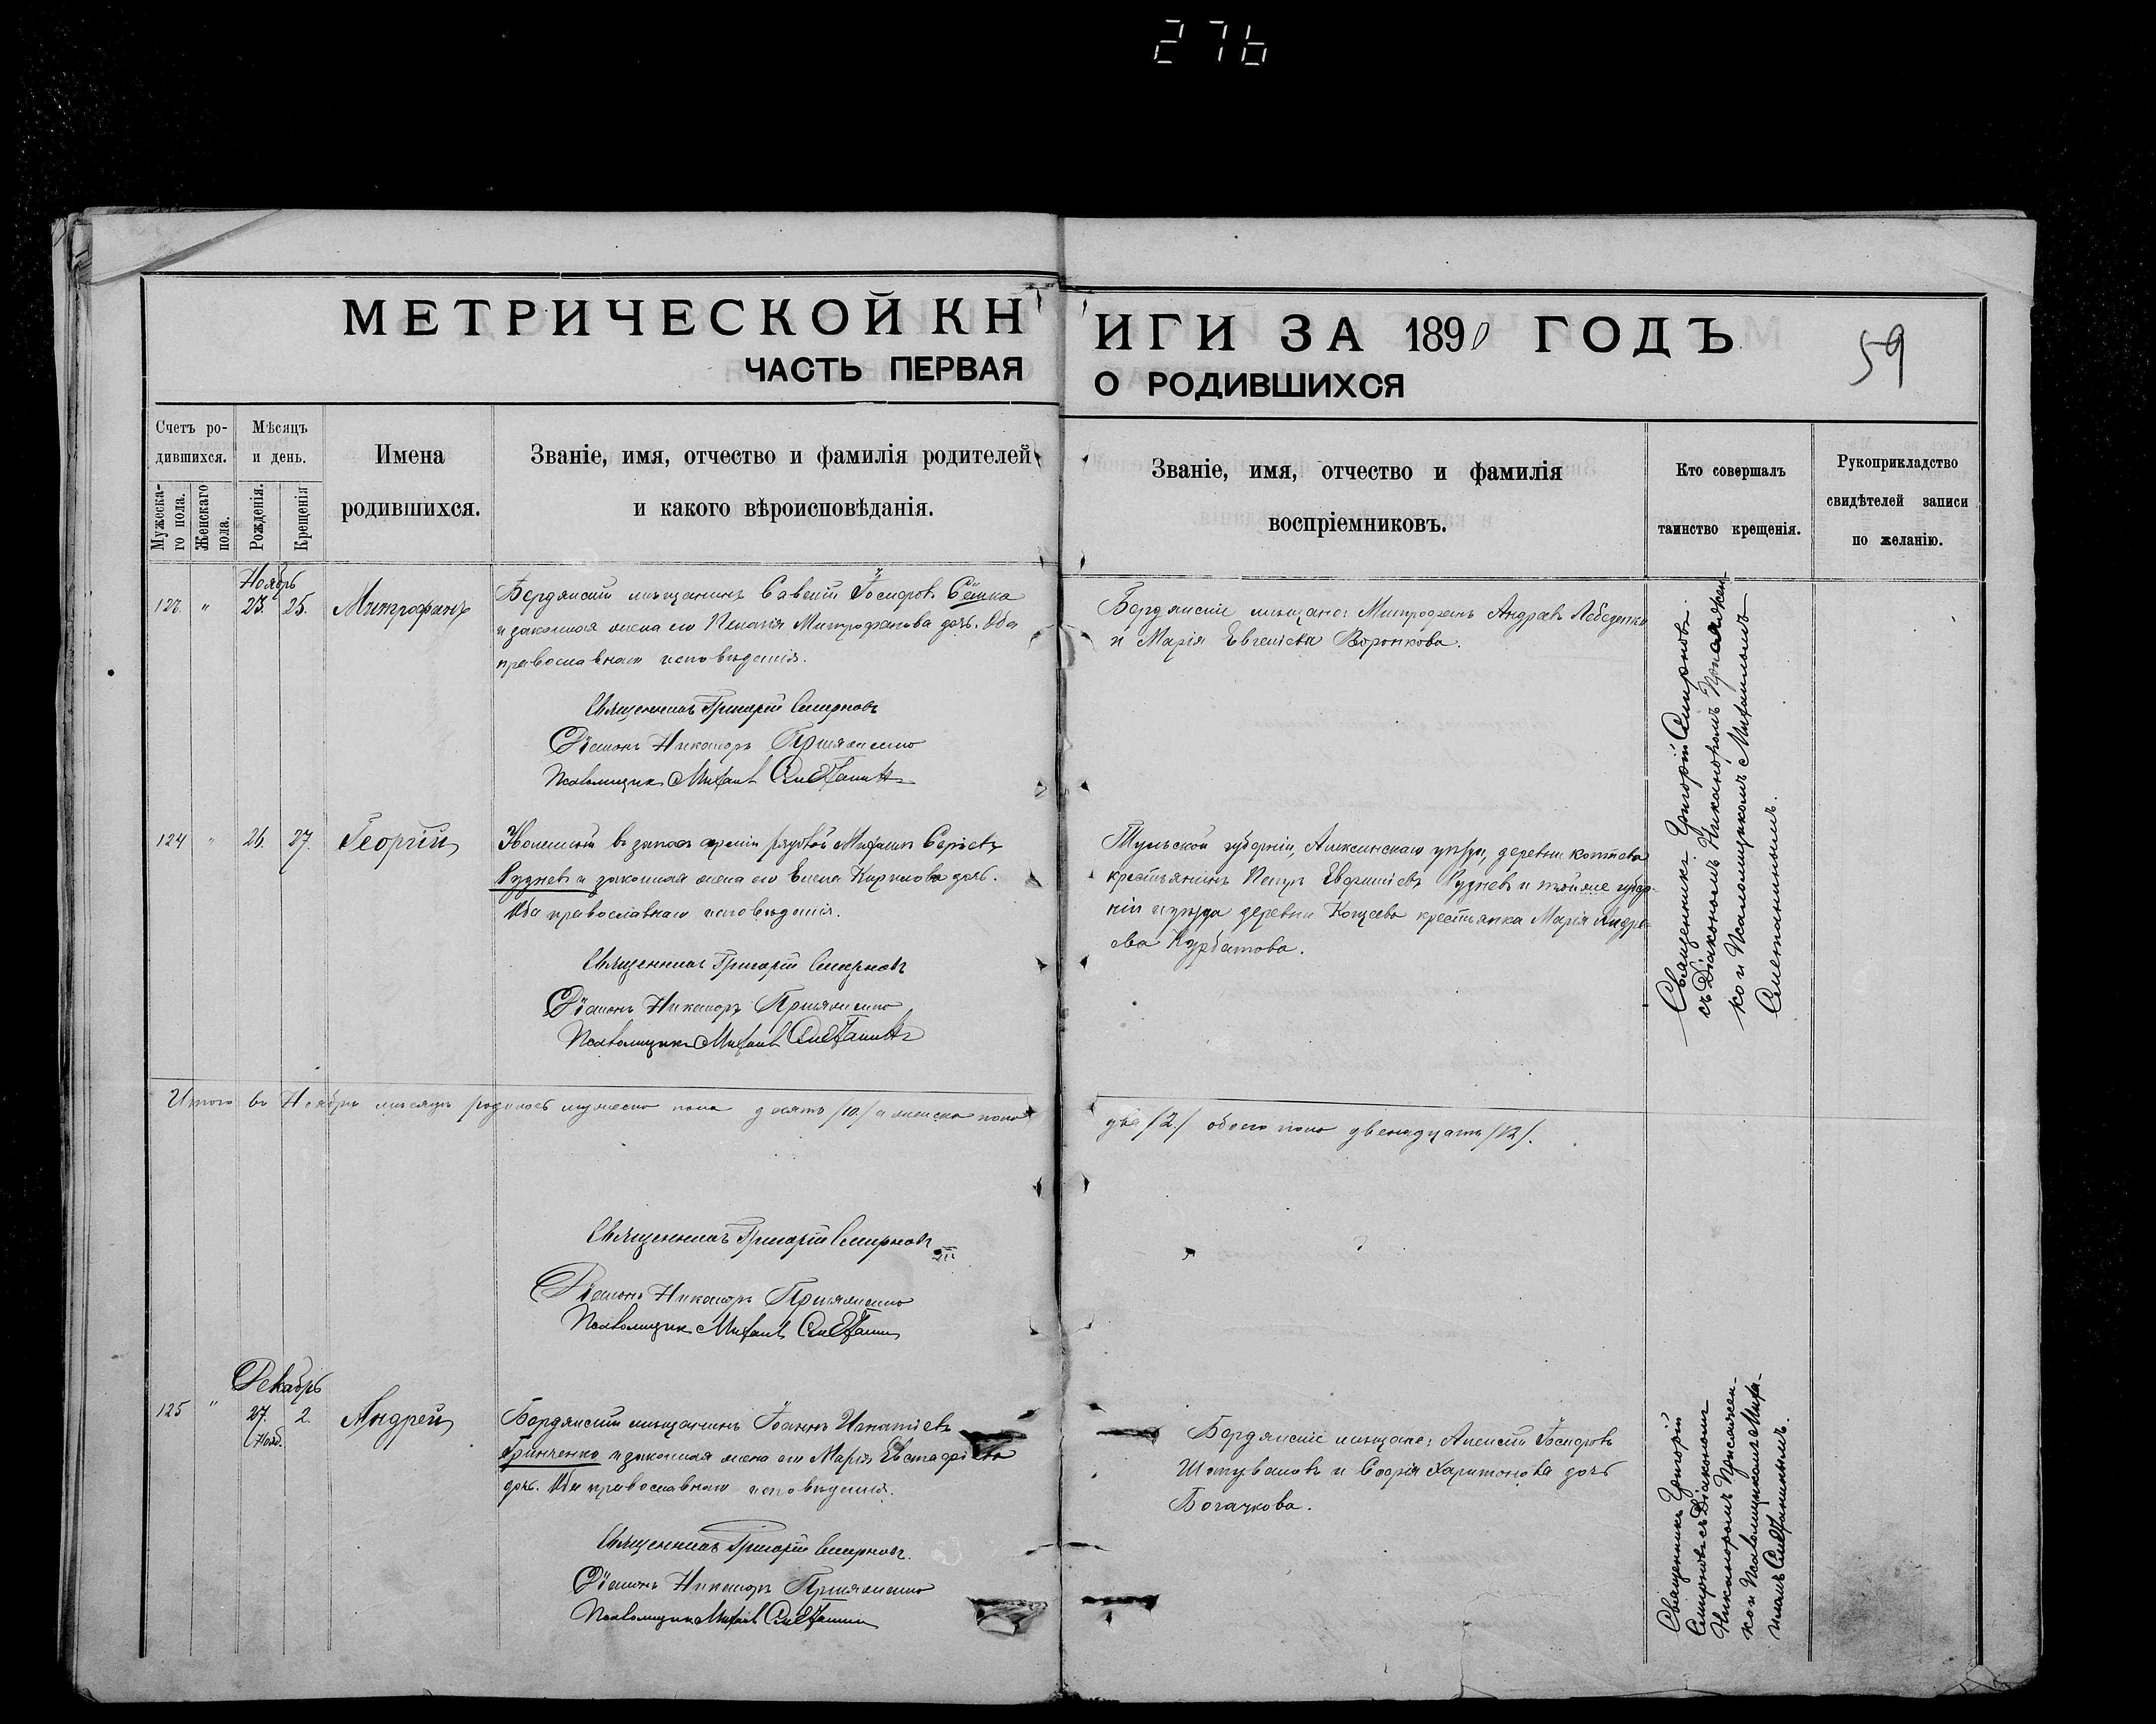 276
МЕТРИЧЕСКОЙ КНИГИ ЗА 1890 ГОДЪ
59
ЧАСТЬ ПЕРВАЯ О РОДИВШИХСЯ
Счетъ ро-
дившихся.
Мужеска-
го пола.
Женскаго
пола.
Мѣсяцъ
и день.
Рожденія.
Крещенія
Имена
родившихся.
Званіе, имя, отчество и фамилія родителей
и какого вѣроисповѣданія.
Званіе, имя, отчество и фамилія
воспріемниковъ.
Кто совершалъ
таинство крещенія.
Рукоприкладство
свидѣтелей записи
по желанію.
Ноябрь
123. " 23. 25. Митрофанъ
Бердянскій мѣщанинъ Савелій Іосифовъ
и законная жена его Пелагія Митрофанова дочь. Оба
православнаго исповѣданія.
Священникъ Григорій Смирновъ
Діаконъ Никаноръ
Псаломщикъ Михаилъ Сметанинъ
Бердянскіе мѣщане: Митрофанъ Андреевъ Лебеденко
и Марія Евгеніева Воронкова.
Священникъ Григорій Смирновъ
съ Діакономъ Никаноромъ
ко и Псаломщикомъ Михаиломъ
Сметанинымъ.
124 " 26. 27. Георгій
Уволенный въ запасъ арміи рядовой Михаилъ Сергѣевъ
Рудневъ и законная жена его Елена Кирилова дочь.
Оба православнаго исповѣданія.
Священникъ Григорій Смирновъ
Діаконъ Никаноръ
Псаломщикъ Михаилъ Сметанинъ
Тульской губерніи, Алексинскаго уѣзда, деревни
крестьянинъ Рудневъ и той же губер-
ніи и уѣзда деревни крестьянка Марія Андре-
ева Курбатова.
Итого въ Ноябрѣ мѣсяцѣ родилось мужеска пола десять /10./ а женска пола
два /2./ обоего пола двенадцать /12/.
Священникъ Григорій Смирновъ
Діаконъ Никаноръ
Псаломщикъ Михаилъ Сметанинъ
Декабрь
125 " 27. 2. Андрей
(Нояб.
Бердянскій мѣщанинъ Іоаннъ Игнатіевъ
Гринченко и законная жена его Марія Евстафіева
дочь. Оба православнаго исповѣданія.
Священникъ Григорій Смирновъ.
Діаконъ Никаноръ
Псаломщикъ Михаилъ Сметанинъ
Бердянскіе мѣщане: Алексій Іосифовъ
и Софія Харитонова дочь
Богачкова.
Священникъ Григорій
Смирновъ съ Діакономъ
Никаноромъ
ко и Псаломщикомъ Миха-
иломъ Сметанинымъ.